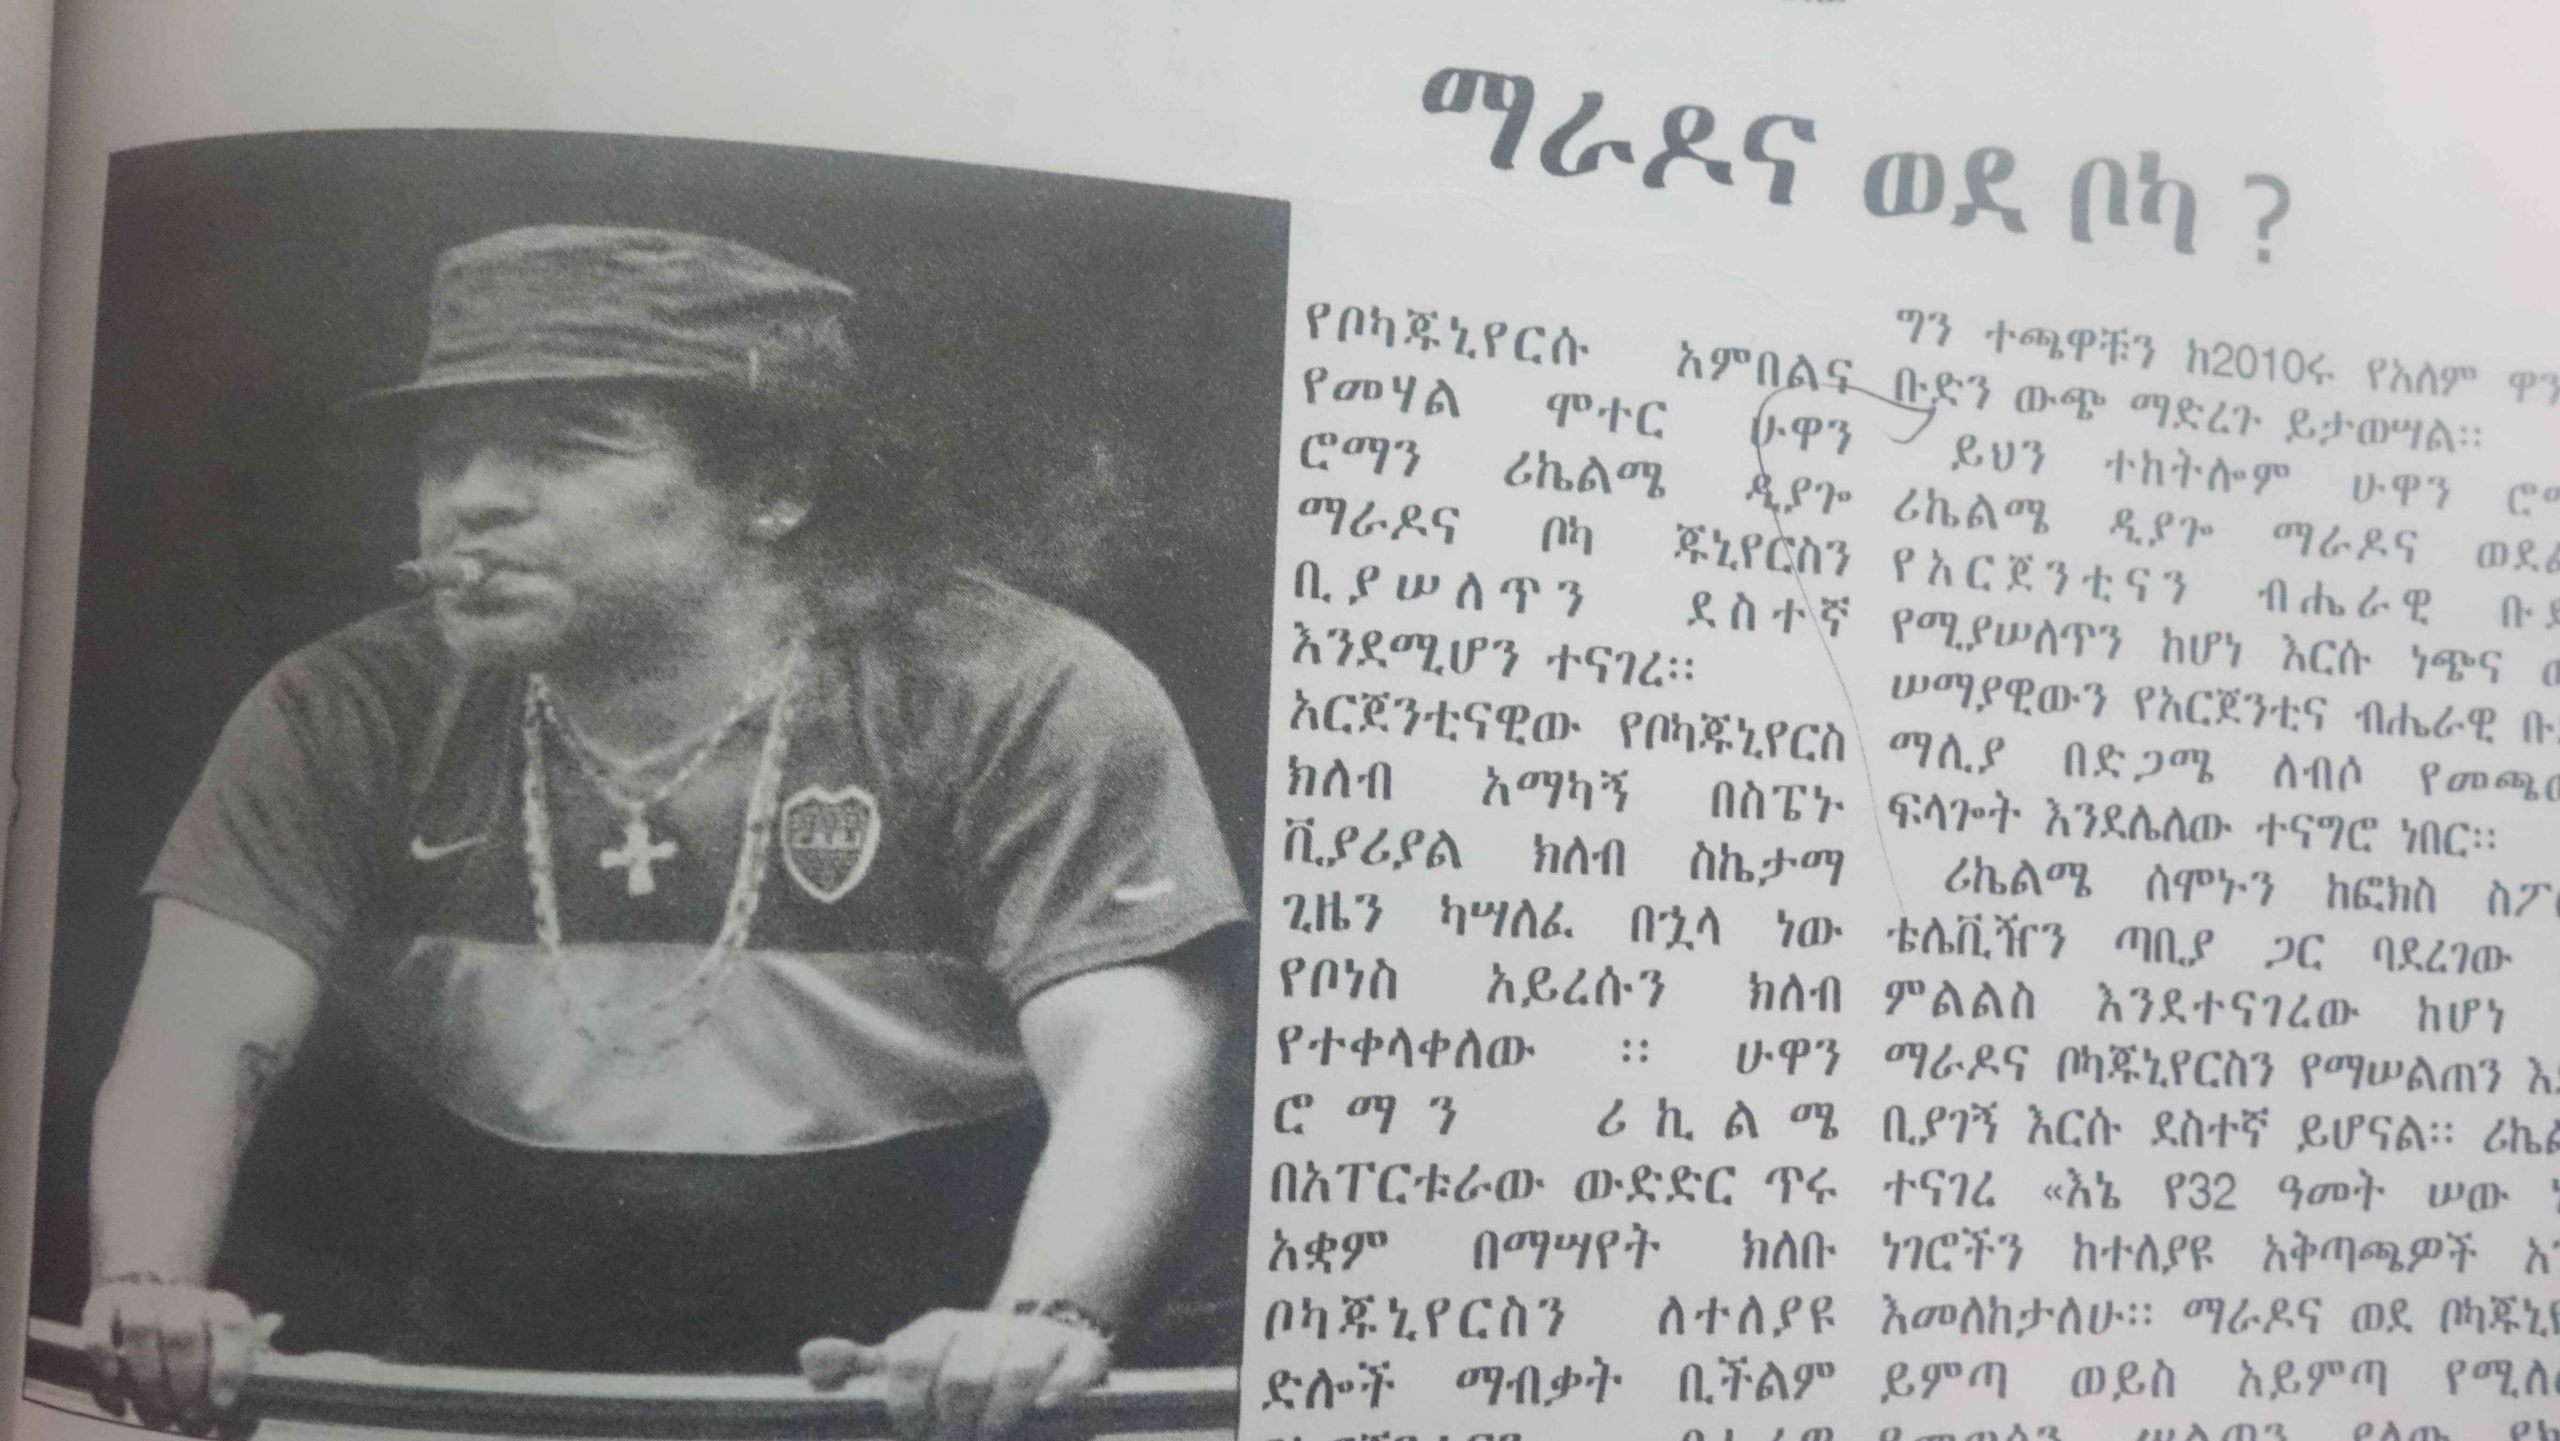 ማራዶና ወደ ቦካ ?
የቦካጁኒየርሱ አምበልና
የመሃል ሞተር ሁዋን
ሮማን ሪኬልሜ ዲያጎ
ማራዶና ቦካ ጁኒየርስን
ቢያሠለጥን ደስተኛ
እንደሚሆን ተናገረ፡፡
አርጀንቲናዊው የቦካጁኒየርስ
ክለብ አማካኝ በስፔኑ
ቪያሪያል ክለብ ስኬታማ
ጊዜን ካሣለፈ በኋላ ነው
የቦነስ አይረሱን ክለብ
የተቀላቀለው ፡፡ ሁዋን
ሮማን ሪኪልሜ
በአፐርቱራው ውድድር ጥሩ
አቋም በማሣየት ክለቡ
ቦካጁኒየርስን ለተለያዩ
ድሎች ማብቃት ቢችልም
ግን ተጫዋቹን ከ2010ሩ የአለም
ቡድን ውጭ ማድረጉ ይታወሣል፡፡
ይህን ተከትሎም ሁዋን
ሪኬልሜ ዲያጎ ማራዶና
የአርጀንቲናን ብሔራዊ
የሚያሠለጥን ከሆነ እርሱ ነጭና
ሠማያዊውን የአርጀንቲና ብሔራዊ
ማሊያ በድጋሜ ለብሶ
ፍላጎት እንደሌለው ተናግሮ ነበር፡፡
ሪኬልሜ ሰሞኑን ከፎክስ
ቴሌቪዥን ጣቢያ ጋር ባደረገው
ምልልስ እንደተናገረው ከሆነ
ማራዶና ቦካጁኒየርስን የማሠልጠን
ቢያገኝ እርሱ ደስተኛ ይሆናል፡፡
ተናገረ «እኔ የ32 ዓመት ሠው
ነገሮችን ከተለያዩ አቅጣጫዎች
እመለከታለሁ፡፡ ማራዶና ወደ
ይምጣ ወይስ አይምጣ